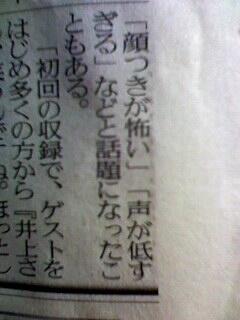 「顔つきが怖い」「声が低す
ぎる」などと話題になったこ
ともある。
「初回の収録で、ゲストを
はじめ多くの方から『井上さ